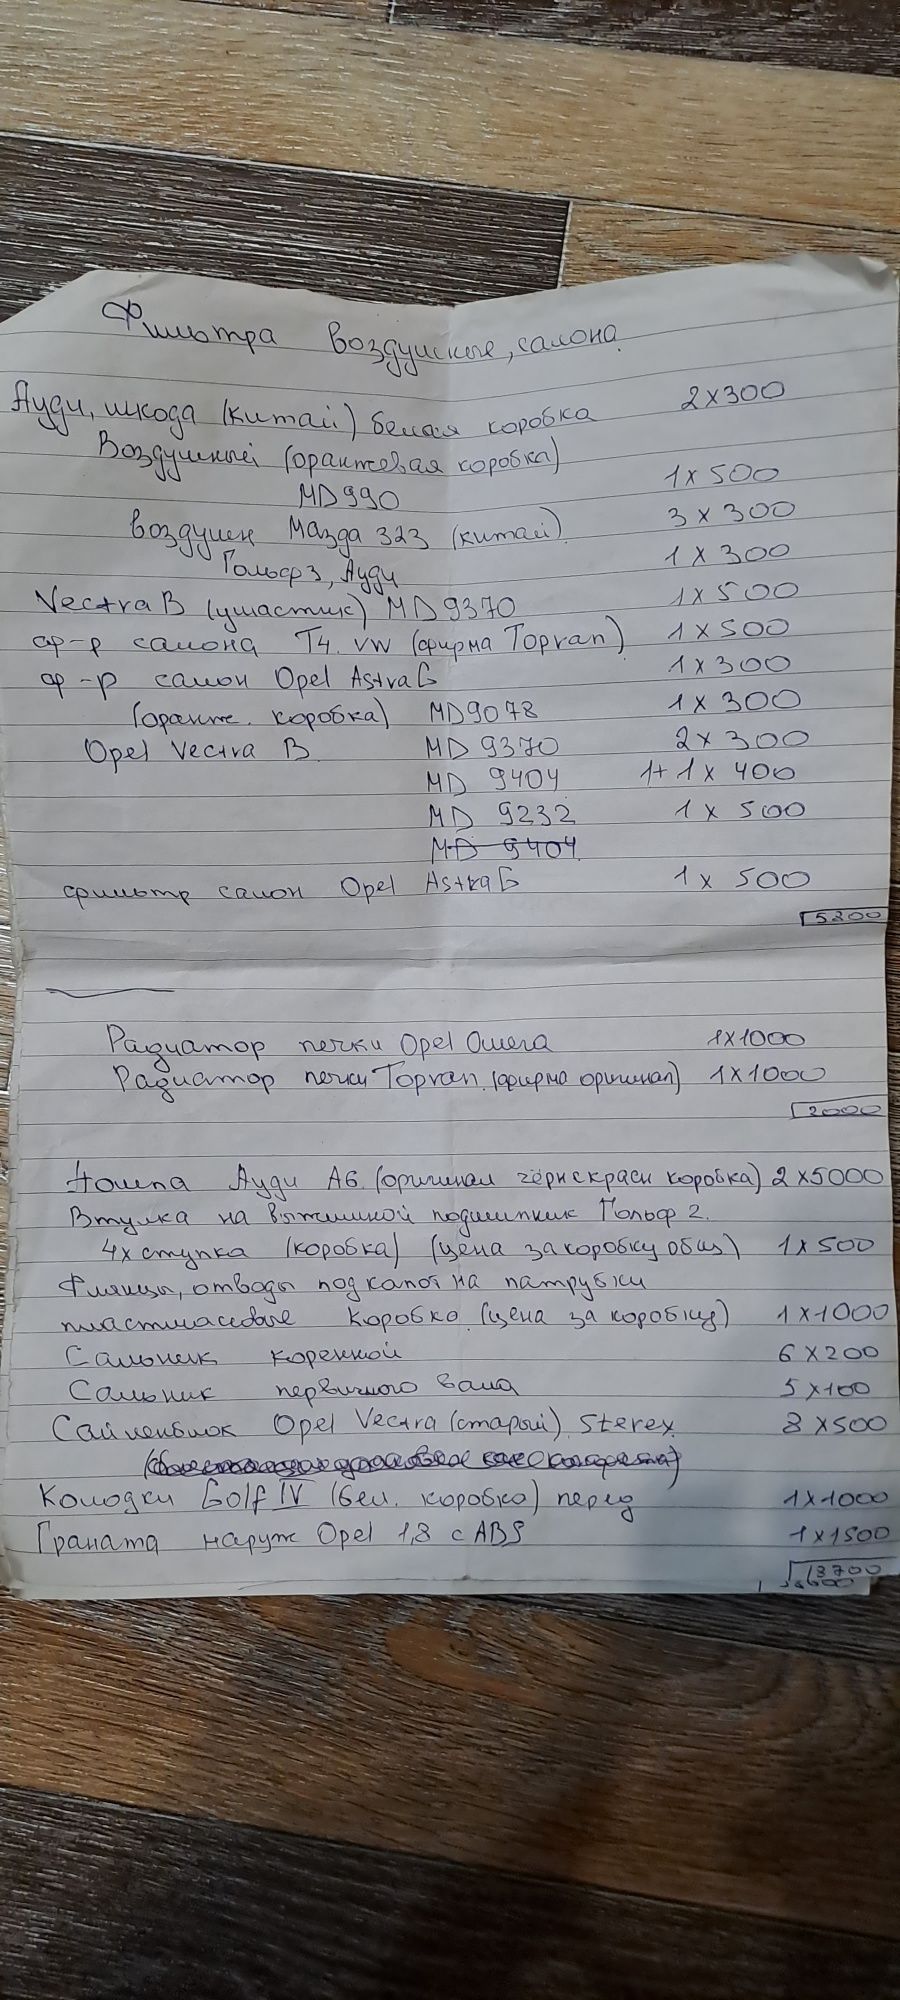 Фильтра воздушные, салона
Ауди, шкода (китай) белая коробка 2х300
Воздушный (оранжевая коробка)
MD990 1х500
воздушн Мазда 323 (китай) 3х300
Гольф3, Ауди 1х300
Vectra B (ушастик) MD9370 1х500
ф-р салона Т4 VW (фирма Topran) 1х500
ф-р салон Opel Astra G 1х300
(оранж. коробка) MD9078 1х300
Opel Vectra B MD 9370 2х300
MD 9404 1+1х400
MD 9232 1х500
MD 9404
фильтр салон Opel Astra G 1х500
Радиатор печки Opel Омега 1х1000
Радиатор печки Topran (фирма оригинал) 1х1000
2000
Помпа Ауди А6 (оригинал чёрнскрасн коробка) 2х5000
Втулка на выжимной подшипник Гольф 2.
4х ступка (коробка) (цена за коробку общ) 1х500
Флянцы, отводы под капот на патрубки
пластмасовые коробко (цена за коробку) 1х1000
Сальник коренной 6х200
Сальник первичного вала 5х100
Сайленблок Opel Vectra (старый) Sterex 8х500
Колодки Golf IV (бел. коробко) перед 1х1000
Граната наруж Opel 1,8 с ABS 1х1500